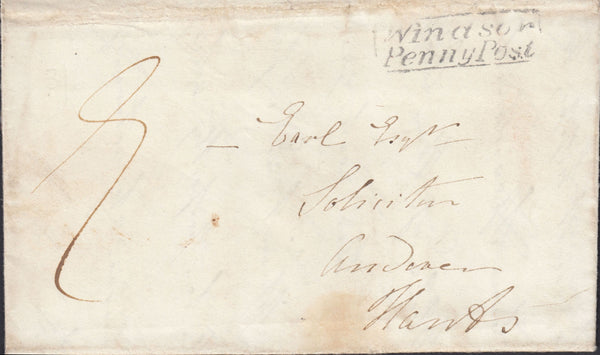 Windsor
Penny Post
— Earl Esqr
Solicitor
Andover
Hants